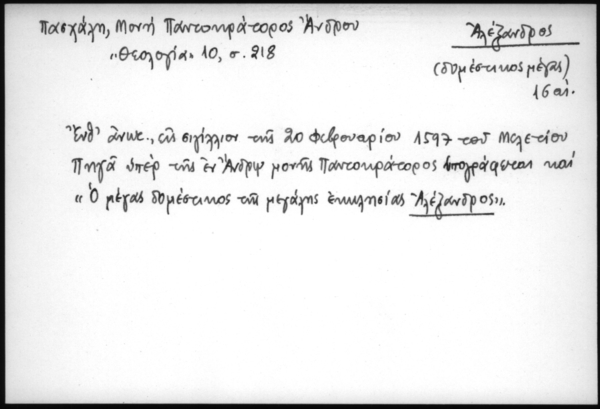 Πασχάλη, Μονή Παντοκράτορος Ἄνδρου
"Θεολογία" 10, σ. 218
Ἀλέξανδρος
(δομέστικος μέγας)
16 αἰ.
Ἔνθ' ἀνωτ., εἰς σιγίλλιον τῆς 20 Φεβρουαρίου 1597 τοῦ Μελετίου
Πηγᾶ ὑπὲρ τῆς ἐν Ἄνδρῳ μονῆς Παντοκράτορος ὑπογράφεται καί
"Ὁ μέγας δομέστικος τῆς μεγάλης ἐκκλησίας Ἀλέξανδρος".